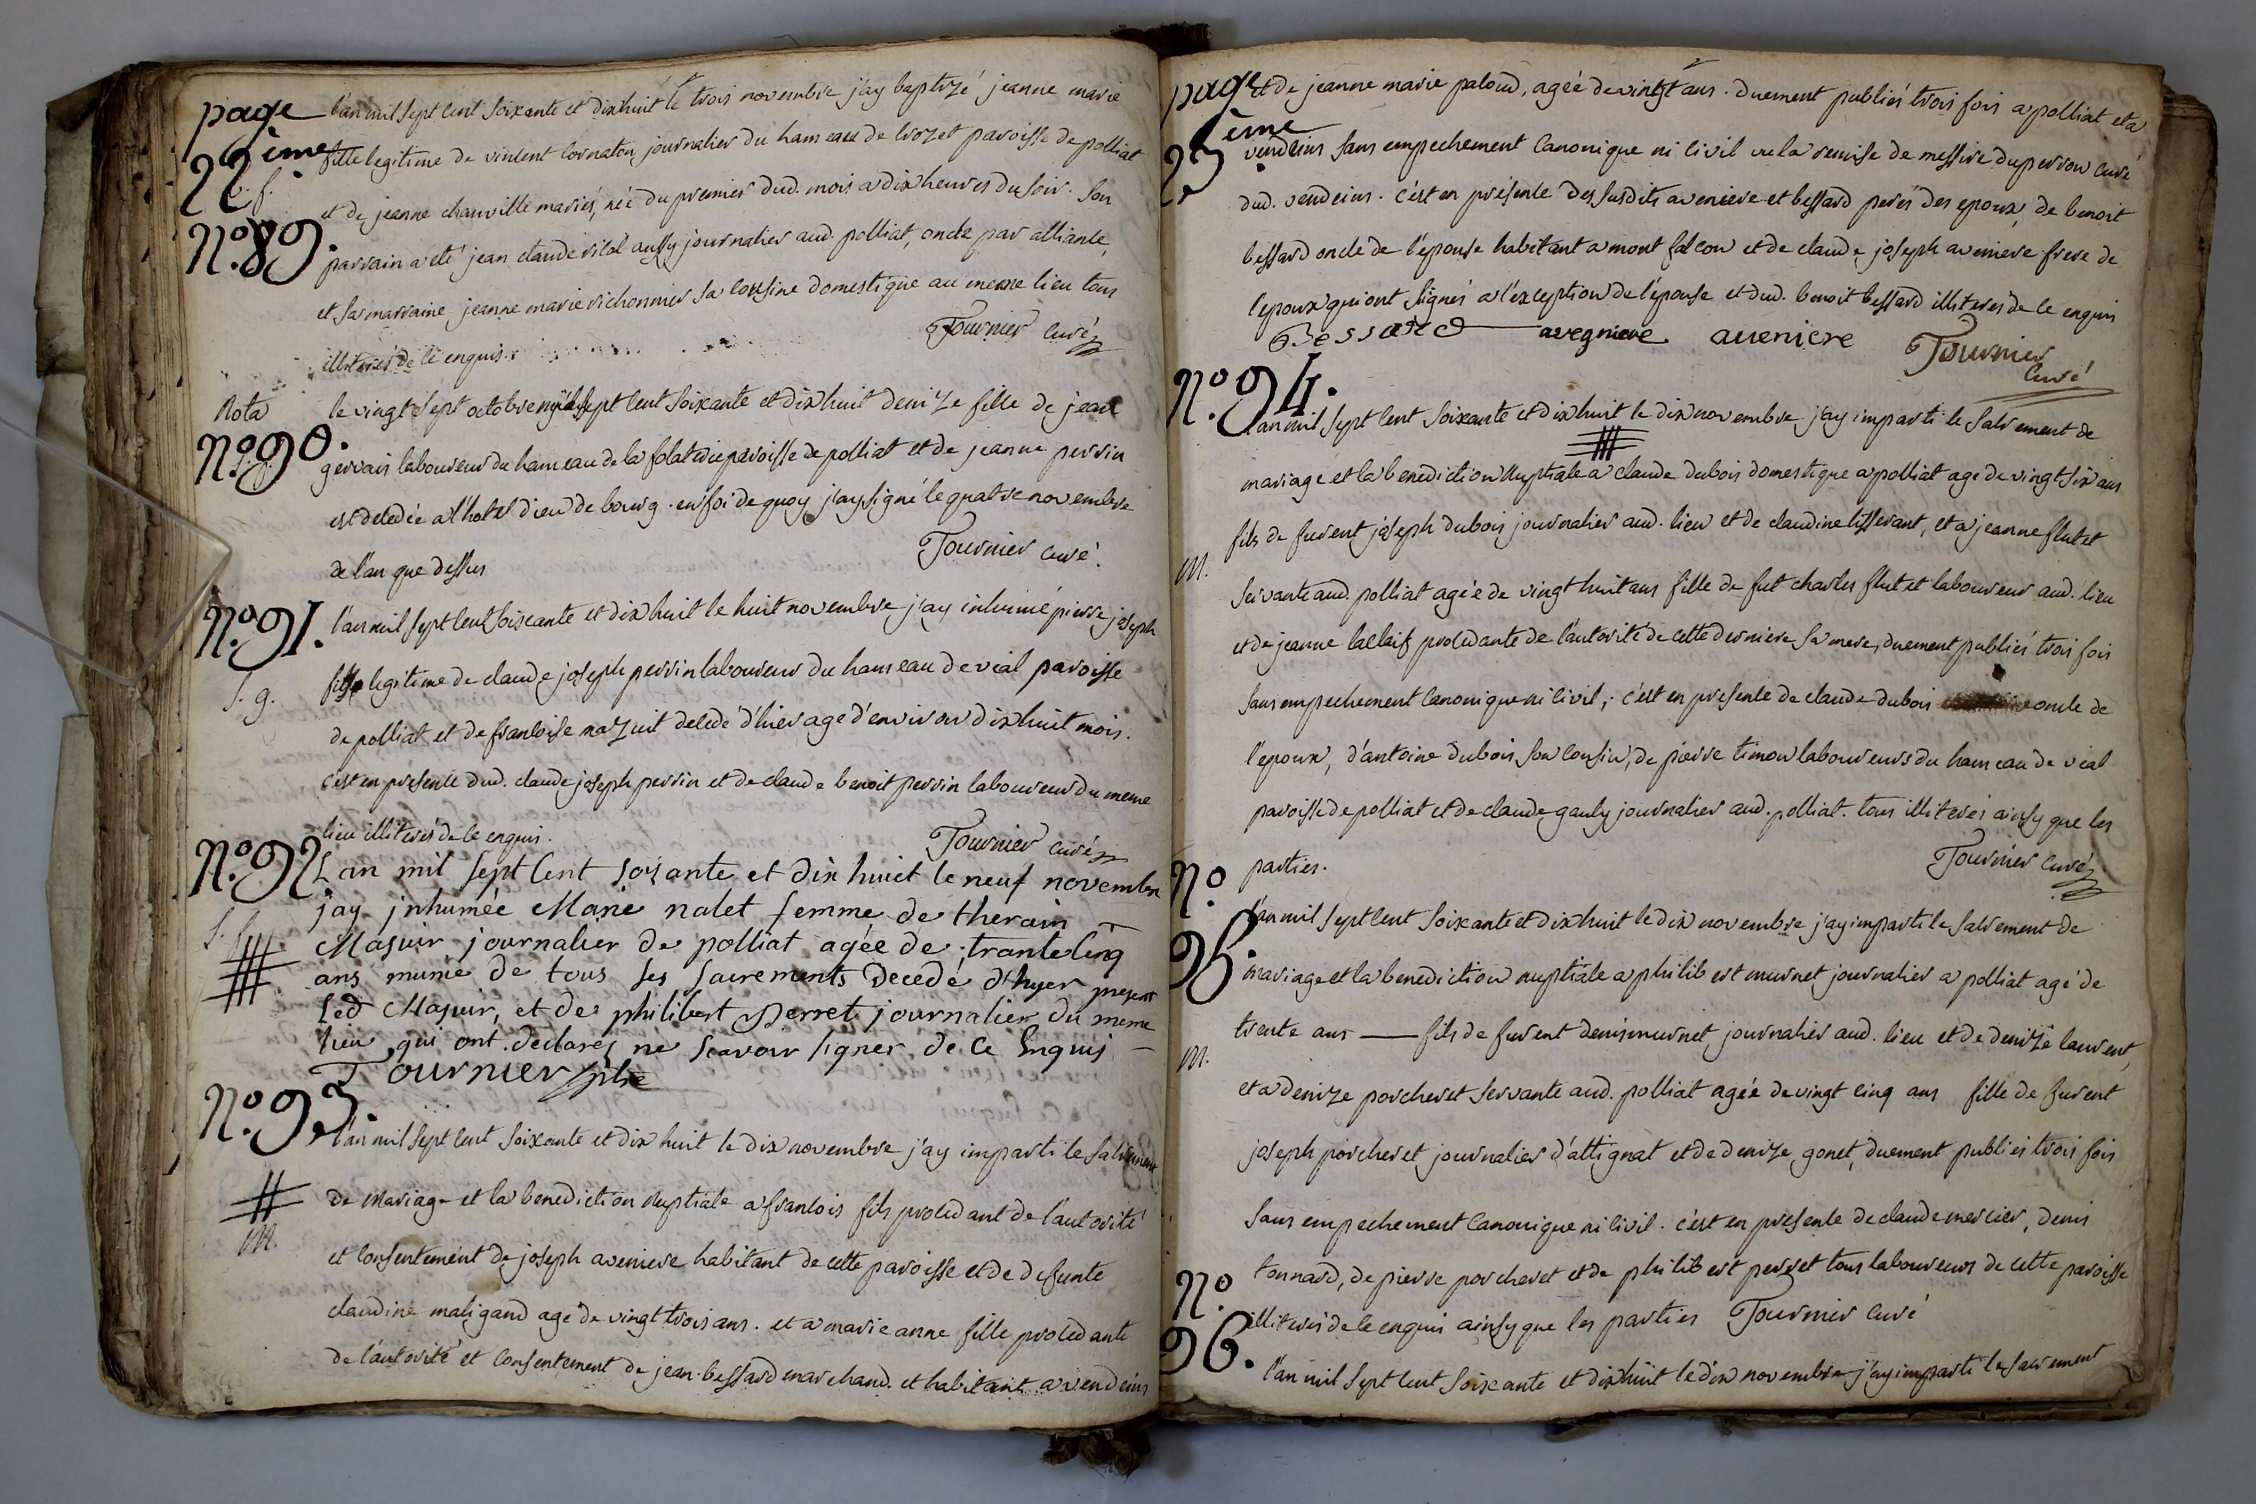 page
22ème
n.f.
N.o 89.
l'an mil sept cent soixante et dixhuit le trois novembre j'ay baptizé jeanne marie
fille legitime de vincent cornaton journalier du hameau de crozet paroisse de polliat
et de jeanne chanville mariés, née du premier dud. mois a dix heures du soir. son
parrain a été jean claude vilol aussy journalier aud. polliat, oncle par alliance,
et sa marraine jeanne marie richonnier sa cousine domestique au meme lieu tous
illiterés de ce enquis.
Tournier curé
Nota
N.o 90.
s.f.
le vingt sept octobre mil sept cent soixante et dix huit denize fille de jean
gervais laboureur du hameau de la folatiere paroisse de polliat et de jeanne perrin
est decedée a l'hotel dieu de bourg. en foi de quoy j'ay signé le quatre novembre
de l'an que dessus
Tournier curé.
N.o 91.
s.g.
l'an mil sept cent soixante et dix huit le huit novembre j'ay inhumé pierre joseph
fils legitime de claude joseph perrin laboureur du hameau de vial paroisse
de polliat et de francoise mazuit decedé d'hier agé d'environ dix huit mois.
c'est en presence dud. claude joseph perrin et de claude benoit perrin laboureur du meme
lieu illiterés de ce enquis.
Tournier curé
N.o 92
s.f.
Lan mil sept cent soixante et dix huict le neuf novembre
jay jnhumée Marie nalet femme de therain
Masuir journalier de polliat agée de trante cinq
ans munie de tous ses sacrements decedé d'hyer present
led Masuir, et de philibert perret journalier du meme
lieu qui ont declarés ne scavoir signer de ce Enquis
Tournier ptre
N.o 93.
m.
l'an mil sept cent soixante et dix huit le dix novembre j'ay imparti le sacrement
de mariage et la benediction nuptiale a francois fils procedant de l'autorité
et consentement de joseph aveniere habitant de cette paroisse et de defunte
claudine maligand agé de vingt trois ans. et a marie anne fille procedante
de l'autorité et consentement de jean bessard marchand et habitant a vendeins
page
23ème
et de jeanne marie paloud, ageé de vingt ans. duement publiés trois fois a polliat et a
vendeins sans empechement canonique ni civil vu la remise de messire duperrou curé
dud. vendeins. c'est en présence des susdits aveniere et bessard peres des epoux, de benoit
bessard oncle de l'epouse habitant a mont falcon et de claude joseph aveniere frere de
l'epoux qui ont signés a l'exception de l'épouse et dud. benoit bessard illiterés de ce enquis
Bessard avegniere aveniere Tournier
curé
N.o 94.
m.
l'an mil sept cent soixante et dix huit le dix novembre j'ay imparti le sacrement de
mariage et la benediction nuptiale a claude dubois domestique a polliat agé de vingt six ans
fils de fuvent joseph dubois journalier aud. lieu et de claudine tisserant, et a jeanne flutet
servante aud. polliat agée de vingt huit ans fille de fut charles flutet laboureur aud. lieu
et de jeanne laclaif procedante de l'autorité de cette derniere sa mere, duement publiés trois fois
sans empechement canonique ni civil; c'est en presence de claude dubois oncle de
l'epoux, d'antoine dubois son cousin, de pierre timon laboureurs du hameau de vial
paroisse de polliat et de claude gauly journalier aud. polliat. tous illiterés ainsy que les
parties.
Tournier curé
N.o
95.
m.
l'an mil sept cent soixante et dix huit le dix novembre j'ay imparti le sacrement de
mariage et la benediction nuptiale a philibert murnet journalier a polliat agé de
trente ans fils de fuvent denis murnet journalier aud. lieu et de denize laurent,
et a denize porcheret servante aud. polliat agée de vingt cinq ans fille de fuvent
joseph porcheret journalier d'attignat et de denize gonet, duement publiés trois fois
sans empechement canonique ni civil. c'est en presence de claude mercier, denis
tonnard, de pierre porcheret et de philibert perret tous laboureurs de cette paroisse
illiterés de ce enquis ainsy que les parties Tournier curé
N.o
96.
l'an mil sept cent soixante et dix huit le dix novembre j'ay imparti le sacrement